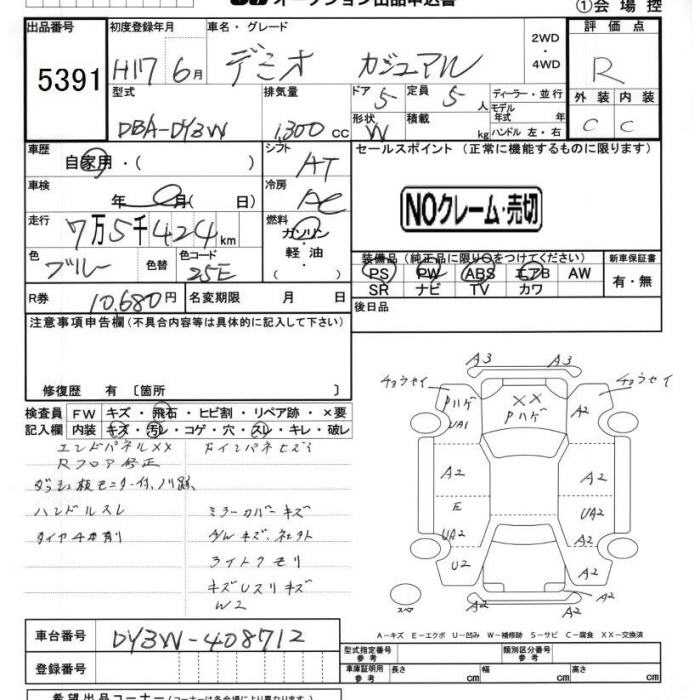 オークション出品申込書
①会場控
出品番号 初度登録年月 車名・グレード 2WD・4WD 評価点
5391 H17 6月 デミオ カジュアル R
型式 排気量 ドア 5 定員 5人 ディーラー・並行 外装 内装
DBA-DY3W 1,300cc 形状 W 積載 kg モデル年式 年 ハンドル 左・右 C C
車歴 自家用・( ) シフト AT セールスポイント (正常に機能するものに限ります)
車検 年 月( 日) 冷房 AC
NOクレーム・売切
走行 7万5千424km 燃料 ガソリン・軽油( )
色 ブルー 色替 色コード 25E
装備品(純正品に限り○をつけてください) 新車保証書
PS PW ABS エアB AW 有・無
SR ナビ TV カワ
R券 10,680円 名変期限 月 日 後日品
注意事項申告欄(不具合内容等は具体的に記入して下さい)
修復歴 有 〔箇所 〕
検査員記入欄 FW キズ・飛石・ヒビ割・リペア跡・×要
内装 キズ・汚レ・コゲ・穴・スレ・キレ・破レ
エンドパネルXX
Rフロア修正
ハンドルスレ ミラーカバーキズ
タイヤ4本有り
ライトクモリ
W2
A3 A3
チョウセイ チョウセイ
Pハゲ XX Pハゲ A2
UA1
A2 A2
E UA2
UA2 A2
U2 A2
A2 A2
スペア
A-キズ E-エクボ U-凹み W-補修跡 S-サビ C-腐食 XX-交換済
車台番号 DY3W-408712
型式指定番号 参考 類別区分番号 参考
登録番号 車庫証明用 参考 長さ cm 幅 cm 高さ cm
希望出品コーナー(コーナーは各会場により異なります)